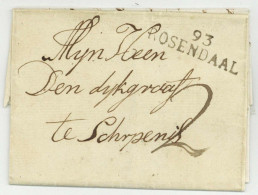 93
ROSENDAAL
Mijn Heer
Den dykgraaf
te Scherpenis
2